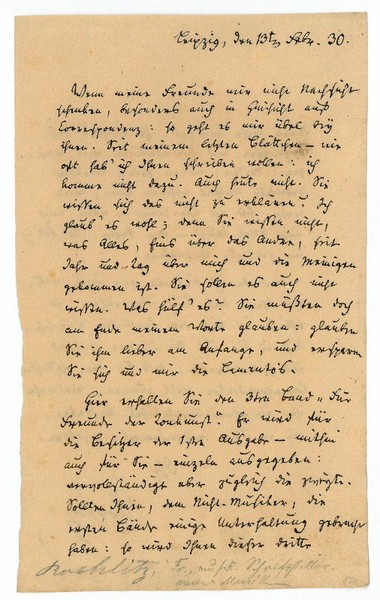 Leipzig, den 13t Febr. 30.
Wenn meine Freunde mir nicht Nachsicht
schenken, besonders auch in Hinsicht auf
Correspondenz: so geht es mir übel bey
ihnen. Seit meinem letzten Blättchen — wie
oft hab' ich Ihnen schreiben wollen: ich
komme nicht dazu. Auch heute nicht. Sie
wissen sich das nicht zu erklären? Ich
glaub' es wohl; denn Sie wissen nicht,
was Alles, Eins über das Andere, seit
Jahr und Tag über mich und die Meinigen
gekommen ist. Sie sollen es auch nicht
wissen. Was hülf' es? Sie müßten doch
am Ende meinem Worte glauben: glauben
Sie ihm lieber am Anfange, und ersparen
Sie sich und mir die Lamentos.
Hier erhalten Sie den 3ten Band „Für
Freunde der Tonkunst". Er wird für
die Besitzer der 1sten Ausgabe — mithin
auch für Sie — einzeln ausgegeben:
vervollständigt aber zugleich die zweyte.
Sollten Ihnen, dem Nicht-Musiker, die
ersten Bände einige Unterhaltung gebracht
haben: so wird Ihnen dieser dritte
Rochlitz, Fr., musik. Schriftsteller